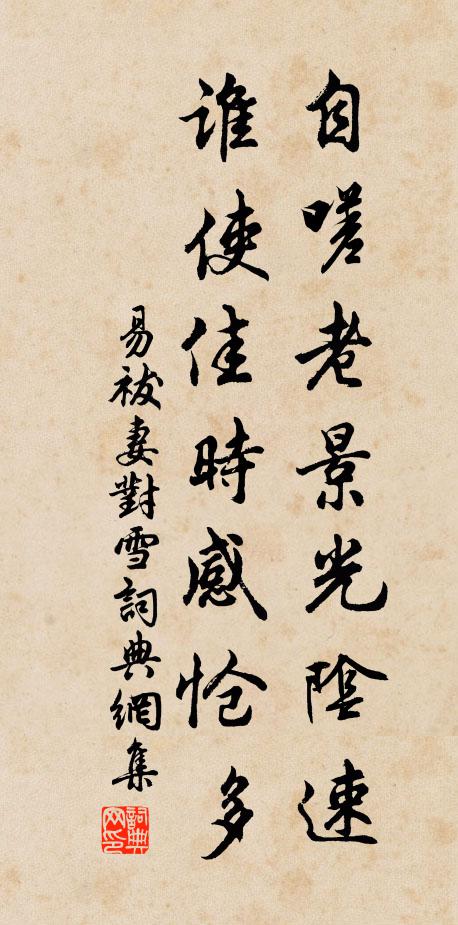 自嗟老景光陰速
誰使佳時感怆多
易祓妻對雪詞典網集
詞典网印